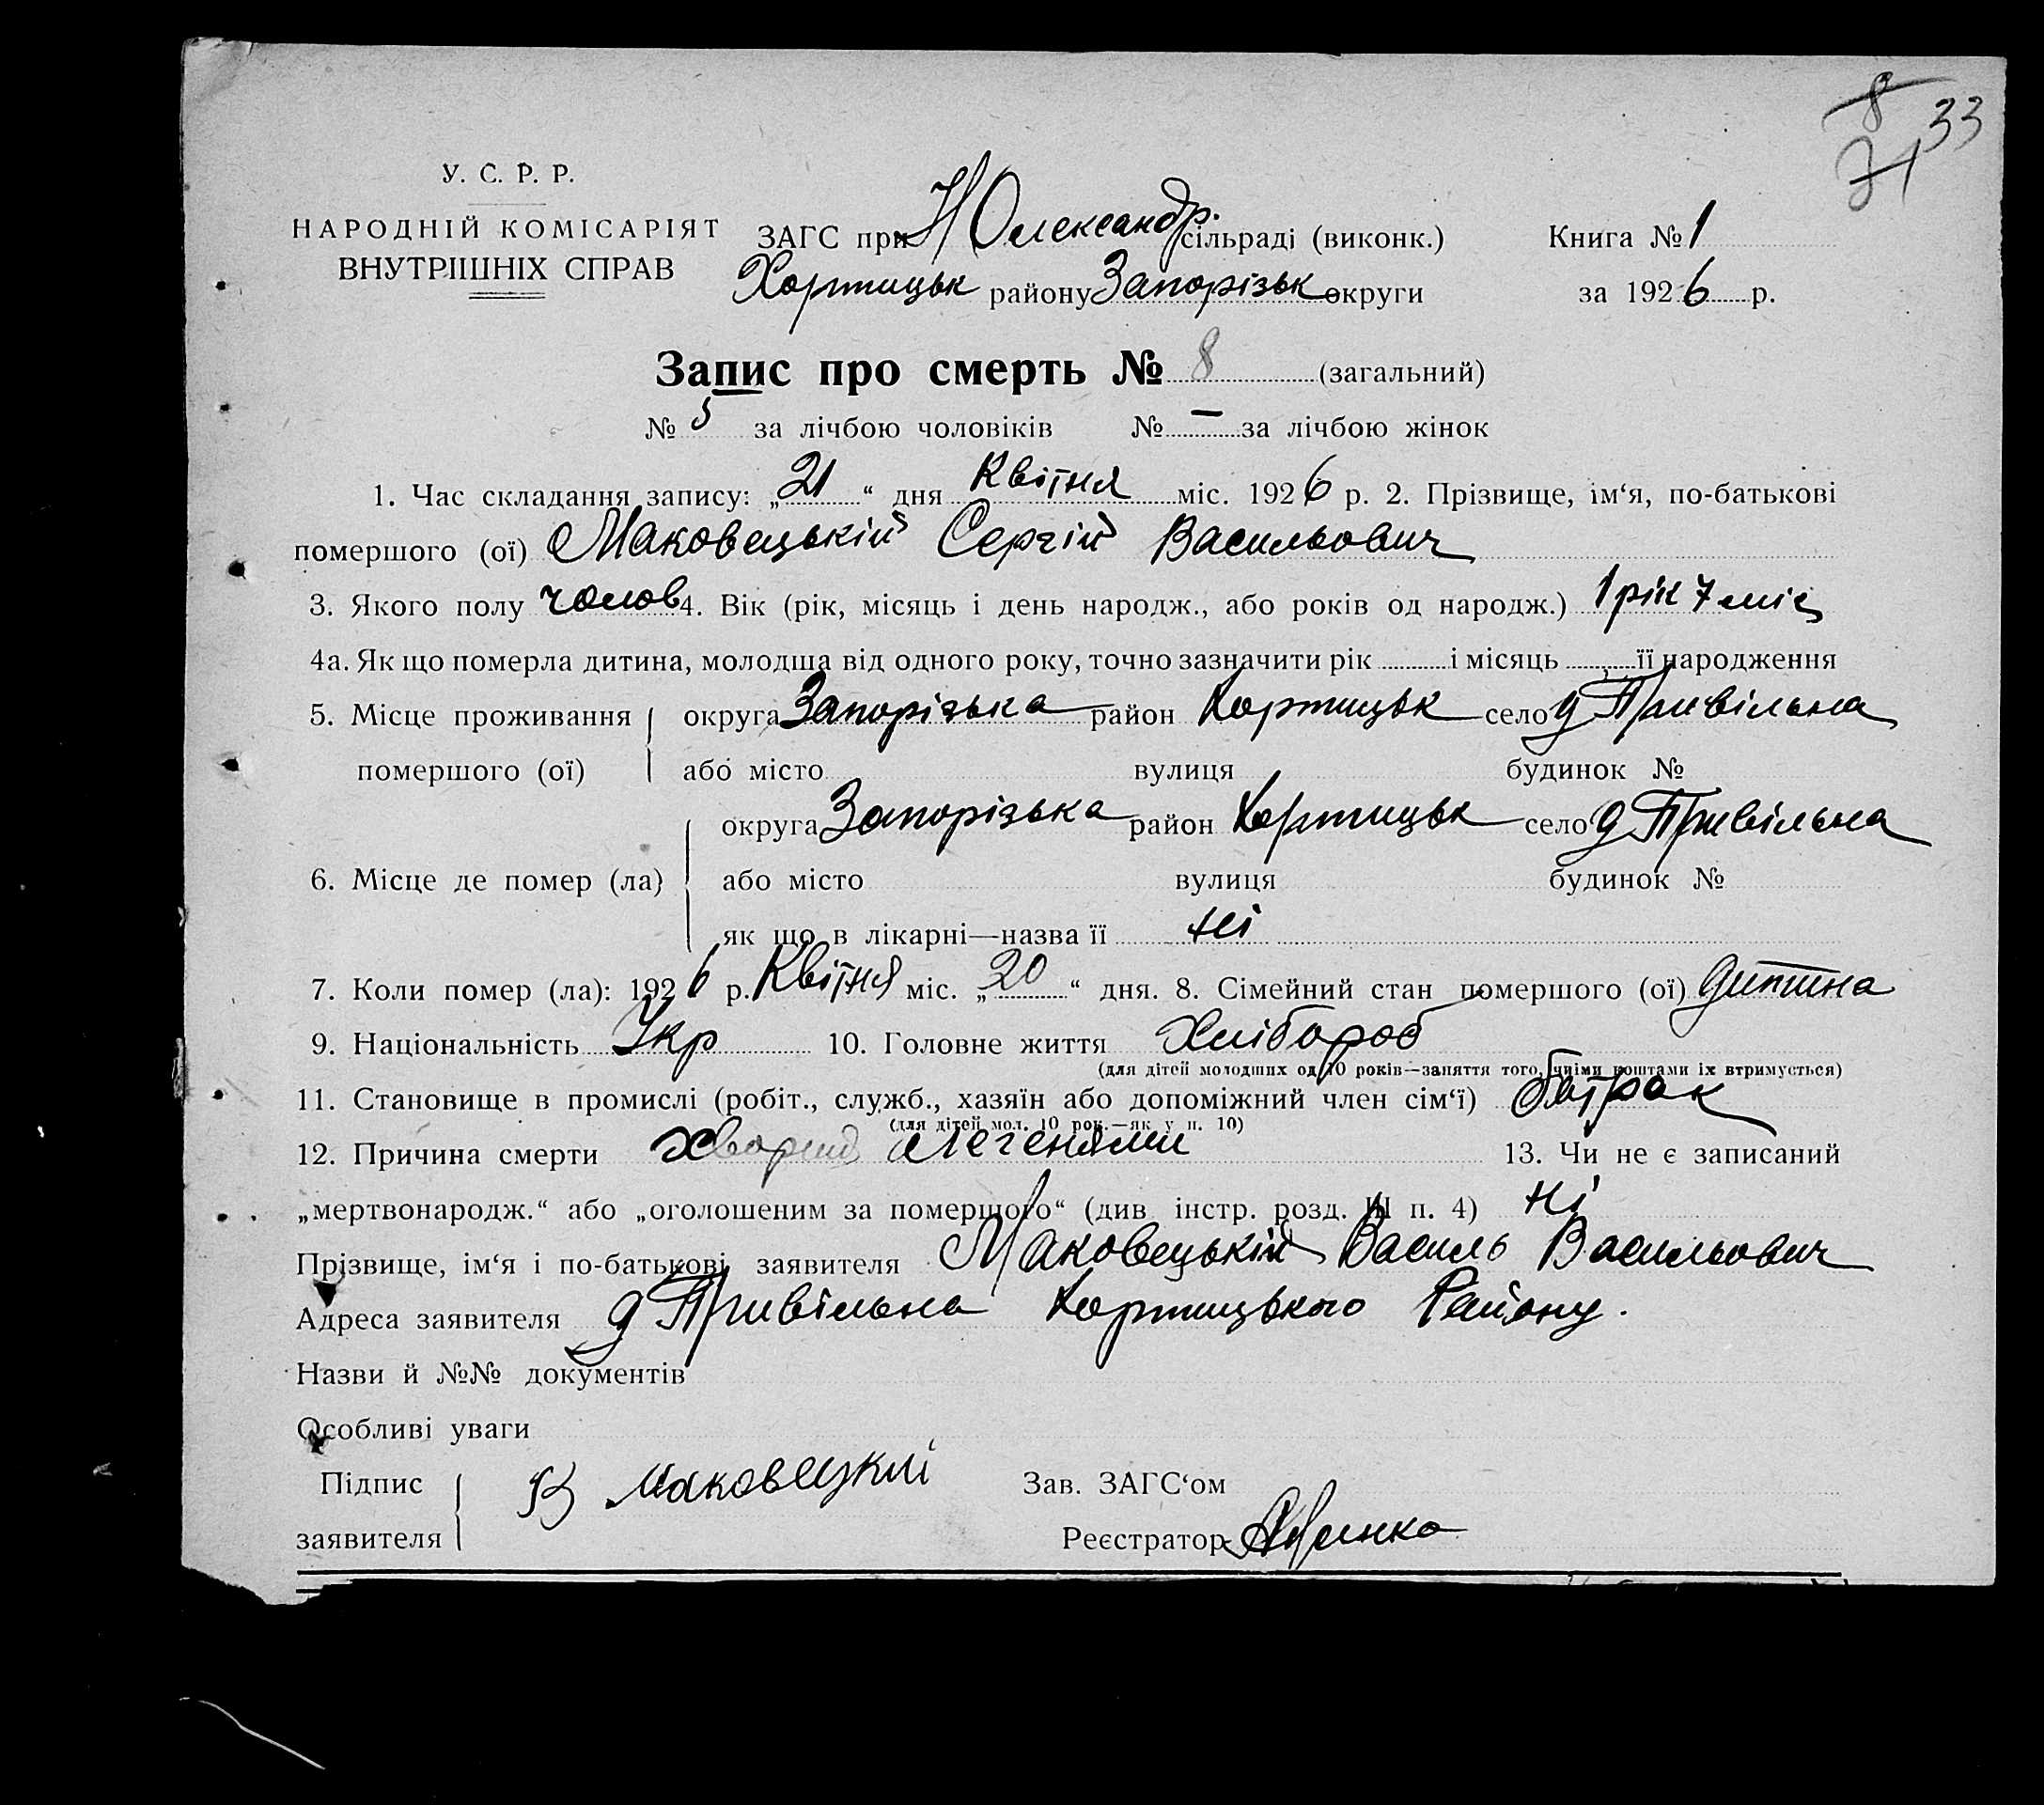 8
33
71
У. С. Р. Р.
НАРОДНІЙ КОМІСАРІЯТ
ВНУТРІШНІХ СПРАВ
ЗАГС при Н Олександр. сільраді (виконк.) Книга № 1
Хортицьк району Запорізьк округи за 1926 р.
Запис про смерть № 8 (загальний)
№ 5 за лічбою чоловіків № — за лічбою жінок
1. Час складання запису: „21“ дня Квітня міс. 1926 р. 2. Прізвище, ім‘я, по-батькові
помершого (ої) Маковецький Сергій Васильович
3. Якого полу чолов 4. Вік (рік, місяць і день народж., або років од народж.) 1 рік 7 міс
4а. Як що померла дитина, молодша від одного року, точно зазначити рік і місяць її народження
5. Місце проживання округа Запорізька район Хортицьк село д Привільна
помершого (ої) або місто вулиця будинок №
округа Запорізька район Хортицьк село д Привільна
6. Місце де помер (ла) або місто вулиця будинок №
як що в лікарні—назва її ні
7. Коли помер (ла): 1926 р. Квітня міс. „20“ дня. 8. Сімейний стан помершого (ої) дитина
9. Національність Укр 10. Головне життя Хлібороб
(для дітей молодших од 10 років—заняття того, чиїми коштами їх втримується)
11. Становище в промислі (робіт., служб., хазяїн або допоміжний член сім‘ї) батрак
(для дітей мол. 10 рок.—як у п. 10)
12. Причина смерти легенями 13. Чи не є записаний
„мертвонародж.“ або „оголошеним за помершого“ (див інстр. розд. III п. 4) ні
Прізвище, ім‘я і по-батькові заявителя Маковецький Василь Васильович
Адреса заявителя д Привільна Хортицького Району.
Назви й №№ документів
Особливі уваги
Підпис В Маковецкий Зав. ЗАГС‘ом
заявителя Реєстратор